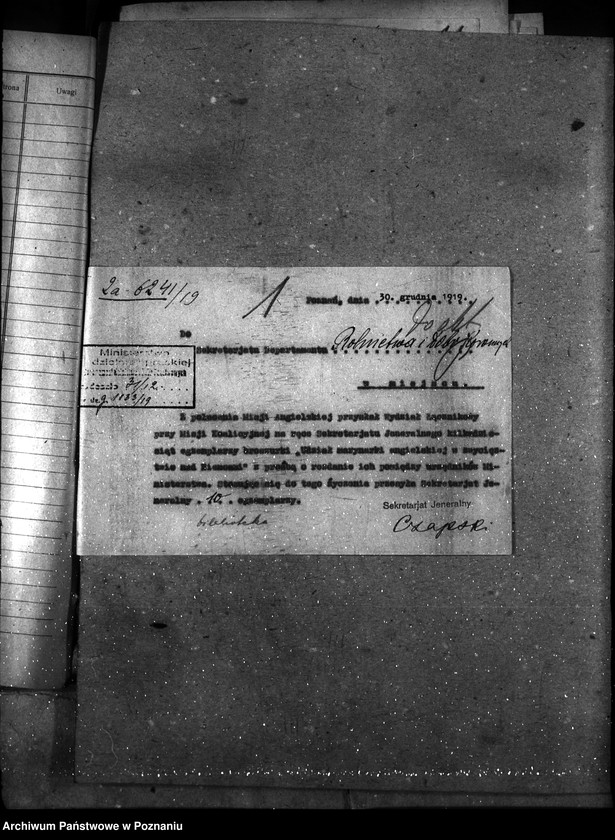 Uwagi
2a - 6241/19
1
Poznań, dnia 30. grudnia 1919.
Do
Sekretarjata Departamentu Rolnictwa i
w miejscu.
Ministerstwo
1133/19
Z polecenia Misji Angielskiej przysłał Wydział Łącznikowy
przy Misji Koalicyjnej na ręce Sekretarjatu Jeneralnego kilkadzie-
siąt egzemplarzy broszurki „Udział marynarki angielskiej w zwycięz-
twie nad Niemcami" z prośbą o rozdanie ich pomiędzy urzędników Mi-
nisterstwa. Stosując się do tego życzenia przesyła Sekretarjat Je-
neralny .10. egzemplarzy.
Sekretarjat Jeneralny
Czapski
biblioteka
Archiwum Państwowe w Poznaniu